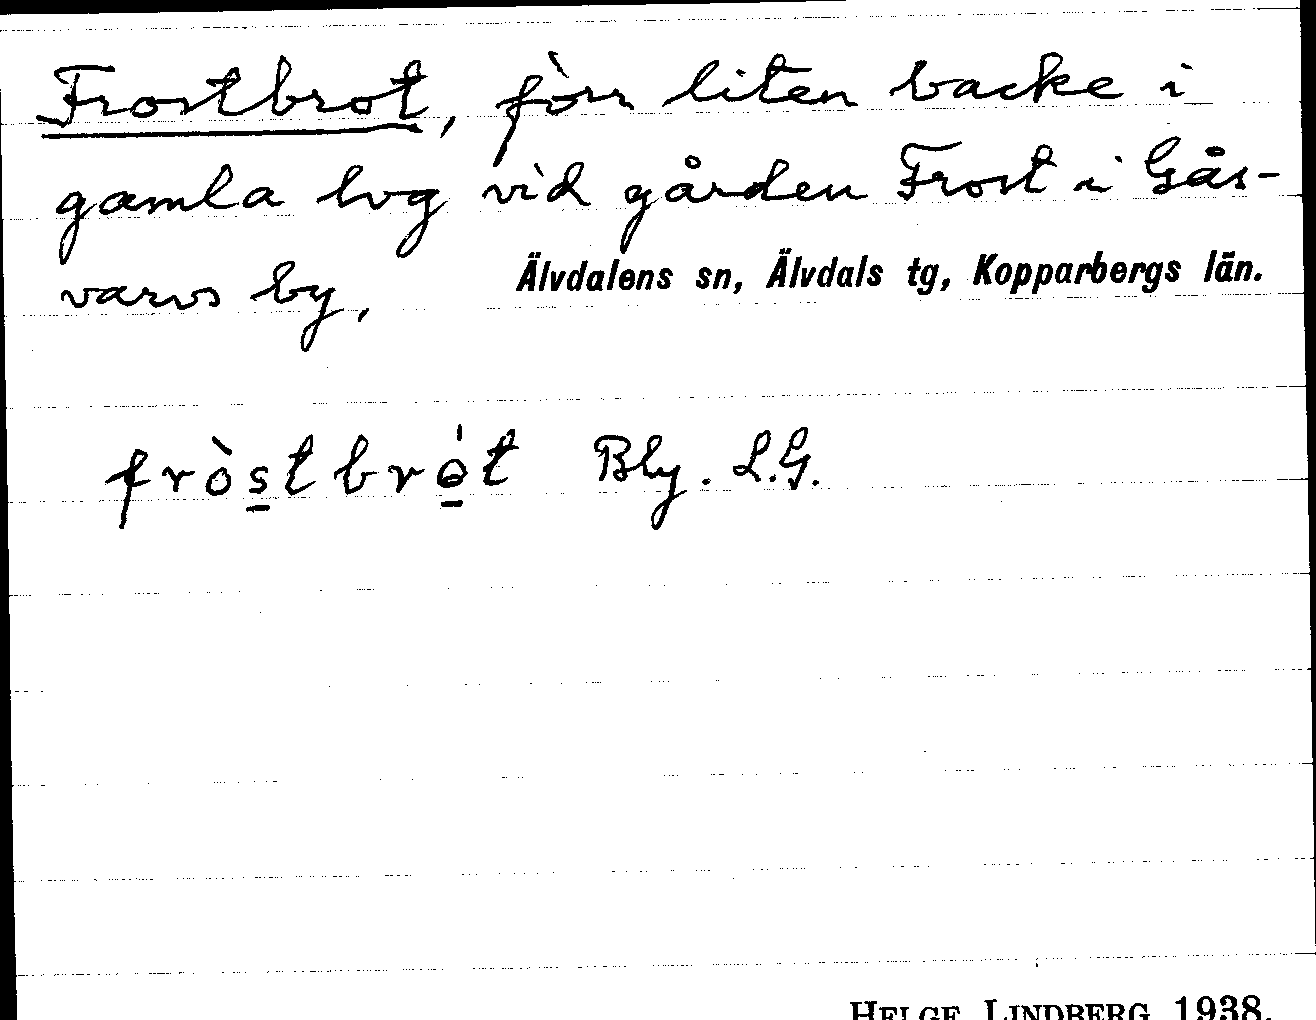 Frostbrot, förr liten backe i
gamla lvg vid gården Frost i Gås-
varvs by, Älvdalens sn, Älvdals tg, Kopparbergs län.
fròs̲tbró̲t Bly. L.G.
HELGE LINDBERG 1938.